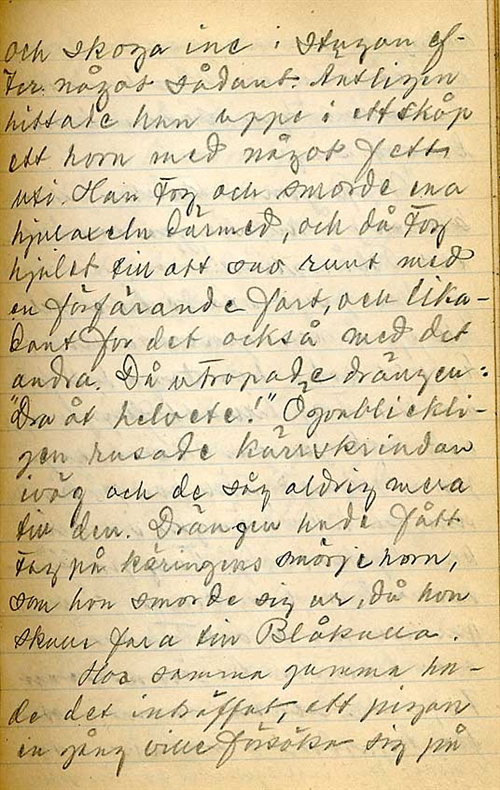 och skoga inc i stugan ef-
ter något sådant. Äntligen
hittade han uppe i ett skåp
ett horn med något fett
uti. Han tog och smorde ena
hjulaxeln därmed, och då tog
hjulet till att sno runt med
en förfärande fart, och lika-
dant for det också med det
andra. Då utropade drängen:
"Dra åt helvete!" Ögonblickli-
gen rusade kärrskrindan
iväg och de såg aldrig mera
till den. Drängen hade fått
tag på käringens smörjehorn,
som hon smorde sig ur, då hon
skulle fara till Blåkulla.
Hos samma gumma ha-
de det inträffat, att pigan
en gång ville försöka sig på